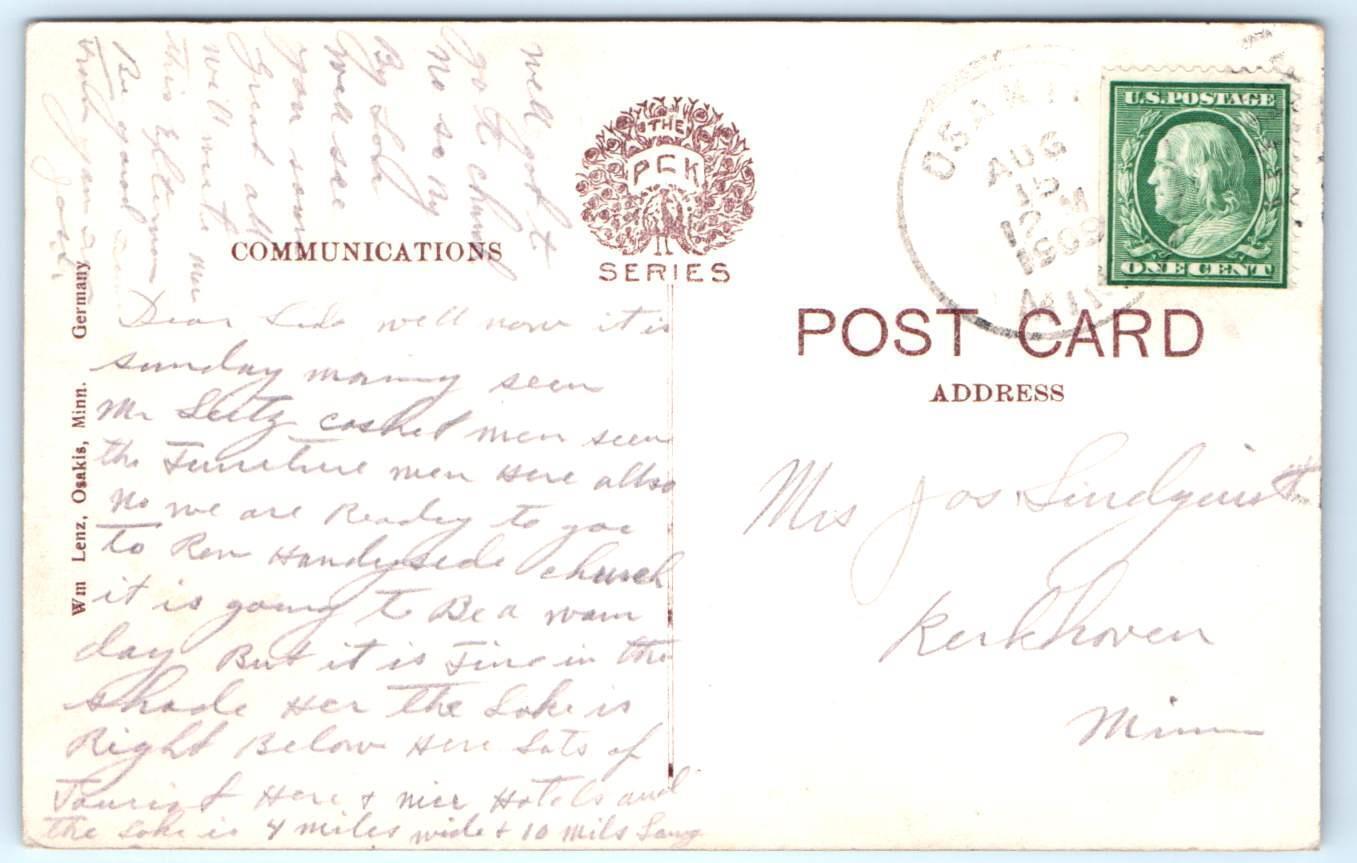 THE
PCK
SERIES
COMMUNICATIONS
POST CARD
ADDRESS
U.S. POSTAGE
ONE CENT
OSAKIS
AUG
15
12 M
1909
MINN
Wm Lenz, Osakis, Minn. Germany
Mrs Jos Lindquist
Kerkhoven
Minn
Dear well now it is
sunday morning seen
Mr Leitz casket men seen
the Furniture men Here allso
No we are Ready to goe
to Rev Handyside church
it is going to Be a warm
day But it is Fine in the
shade Her the Lake is
Right Below Here Lots of
Tourist Here & nice Hotels and
the Lake is 4 miles wide & 10 Mils Long
well got to
go to church
No so By
By Loly
well see
you soon
Great all
will write
this
Be good